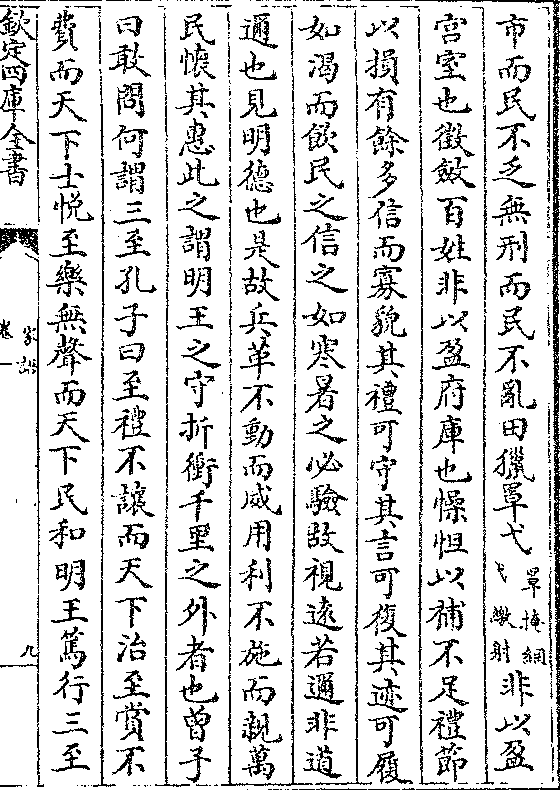 市而民不乏無刑而民不亂田獵罩弋罩掩網弋繳射非以盈
宫室也徵斂百姓非以盈府庫也慘怛以補不足禮節
以損有餘多信而寡貌其禮可守其言可復其迹可履
如渴而飲民之信之如寒暑之必驗故視逺若邇非道
邇也見明德也是故兵革不動而威用利不施而親萬
民懷其惠此之謂明王之守折衝千里之外者也曾子
曰敢問何謂三至孔子曰至禮不讓而天下治至賞不
費而天下士悦至樂無聲而天下民和明王篤行三至
欽定四庫全書
家語
卷一
九